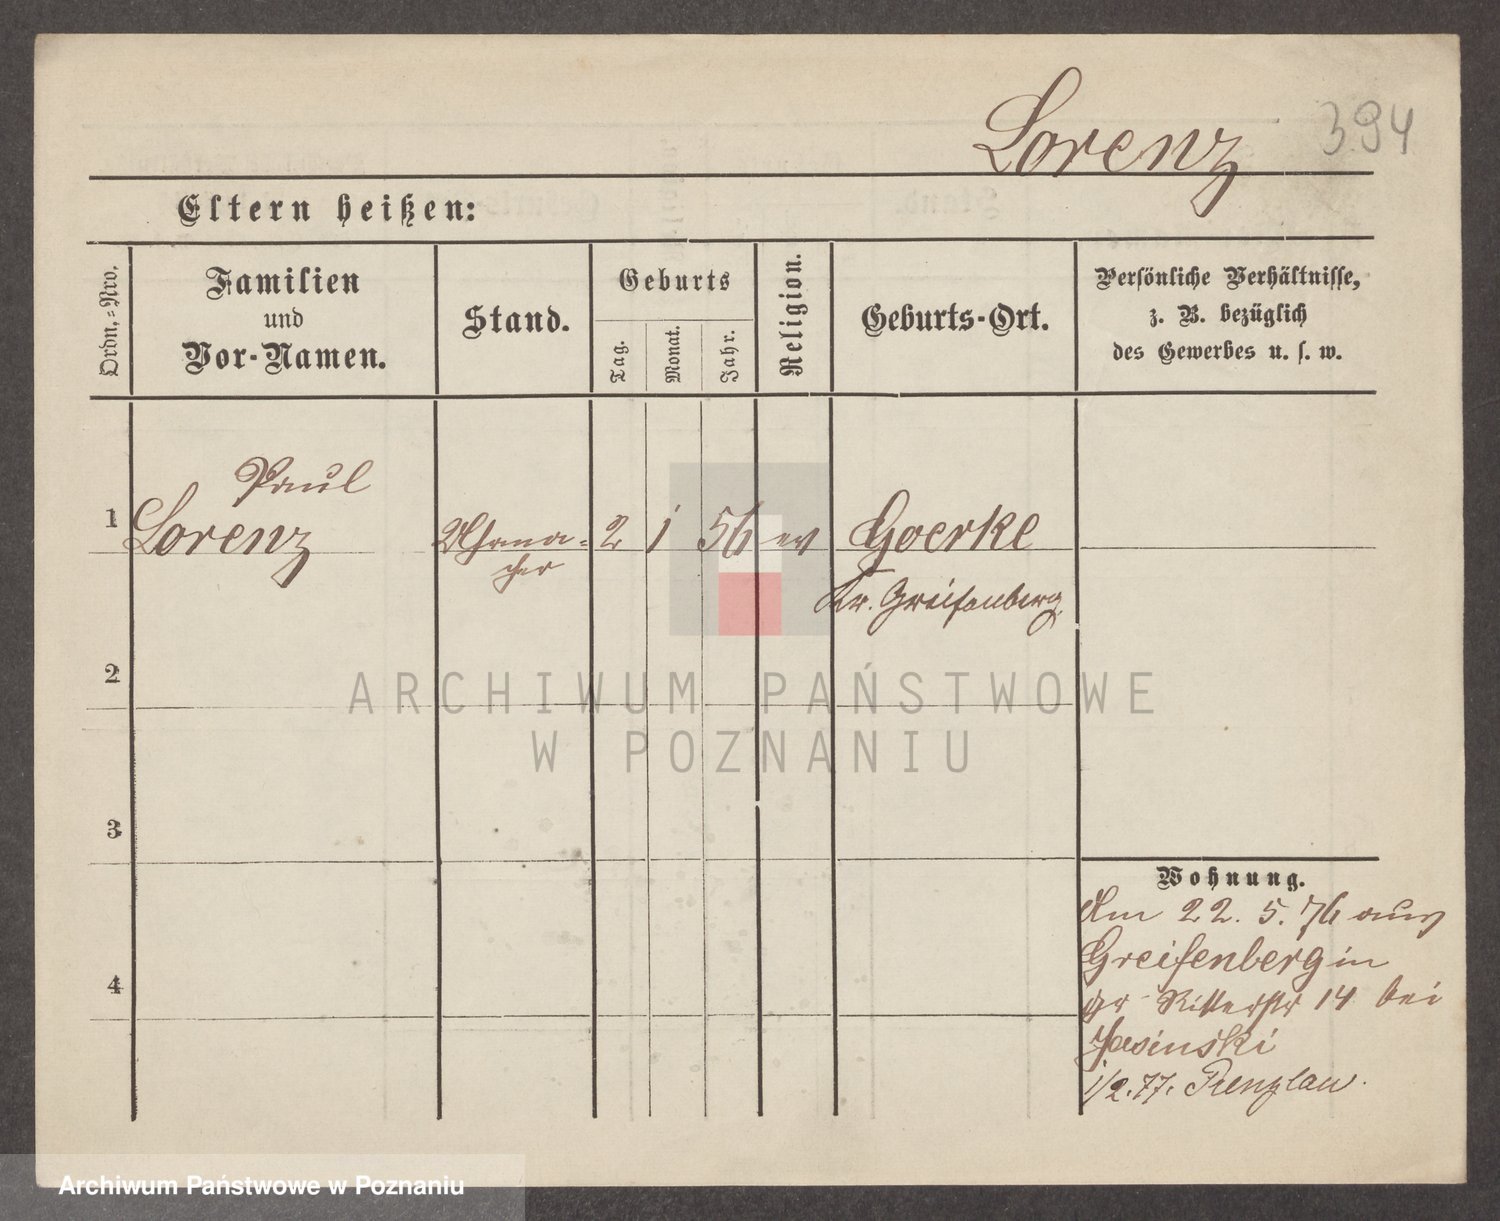 Lorenz 394
Eltern heißen:
Ordn.-Nro.
Familien
und
Vor-Namen.
Stand.
Geburts
Tag.
Monat.
Jahr.
Religion.
Geburts-Ort.
Persönliche Verhältnisse,
z. B. bezüglich
des Gewerbes u. s. w.
Paul
1 Lorenz Uhrma= 2 1 56 ev Goerke
cher
Kr. Greifenberg
2
ARCHIWUM PAŃSTWOWE
W POZNANIU
3
Wohnung.
Am 22. 5. 76 aus
Greifenberg in
4
gr Ritterstr 14 bei
Jasinski
1/2.77. Prenzlau.
Archiwum Państwowe w Poznaniu